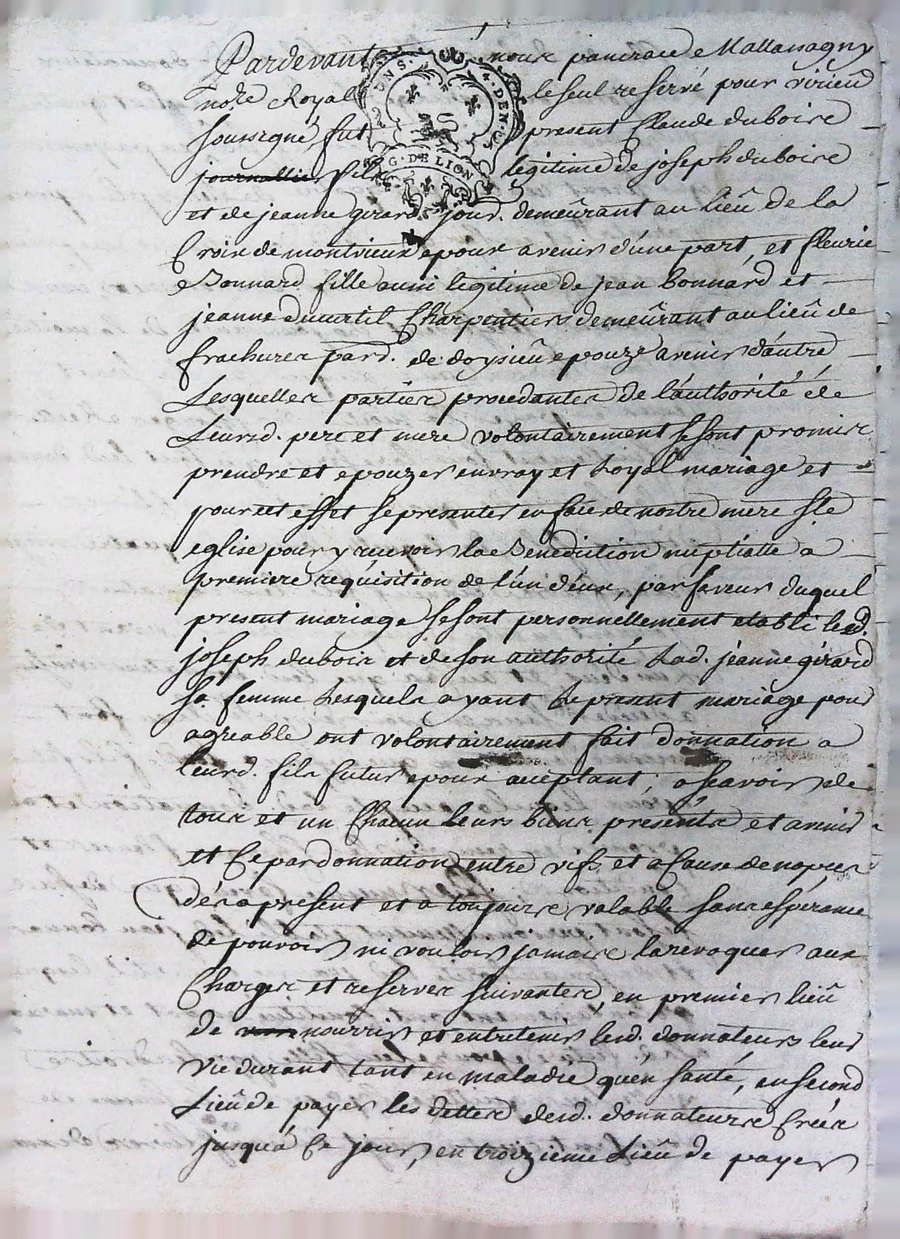 Pardevant nous pancrace Mallassagny
notre Royal le seul reservé pour virieu
soussigné fut present Claude duboire
journallier fils legitime de joseph duboire
et de jeanne girard jour. demeûrant au lieû de la
Croix de montvieux epoux avenir d'une part, et fleurie
Bonnard fille aussi legitime de jean bonnard et
jeanne ducurtil Charpentier demeûrant au lieû de
frachures parr. de doysieû epouze avenir d'autre
Lesquelles parties procedantes de l'authorité de
Leursd. pere et mere volontairement se sont promis
prendre et epouzer en vray et Loyal mariage et
pour cet effet se presenter en face de nostre mere ste
eglise pour y recevoir la Benediction nuptialle a
premiere requisition de l'un d'eux, par faveur duquel
present mariage se sont personnellement etabli led.
joseph duboir et de son authorité Lad. jeanne girard
sa femme Lesquels ayant le present mariage pour
agreable ont volontairement fait donnation a
leurd. fils futur epoux aceptant, a scavoir de
tous et un Chacun leurs biens presents et avenir
et Ce par donnation entre vifs et a Cause de nopces
dés a present et a toujours valable sans esperance
de pouvoir ni vouloir jamais la revoquer aux
Charges et reserves suivantes, en premier lieû
de nourrir et entretenir lesd. donnateurs leur
vie durant tant en maladie qu'en santé, en second
Lieû de payer les dettes desd. donnateurs Créés
jusqu'á Ce jour, en troizieme Lieû de payer
G. DE LION